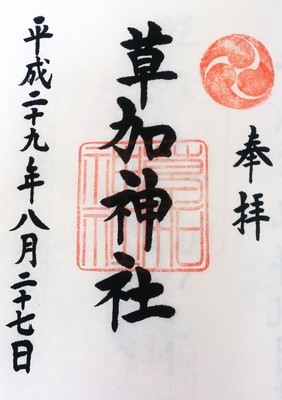 奉拝
草加神社
平成二十九年八月二十七日